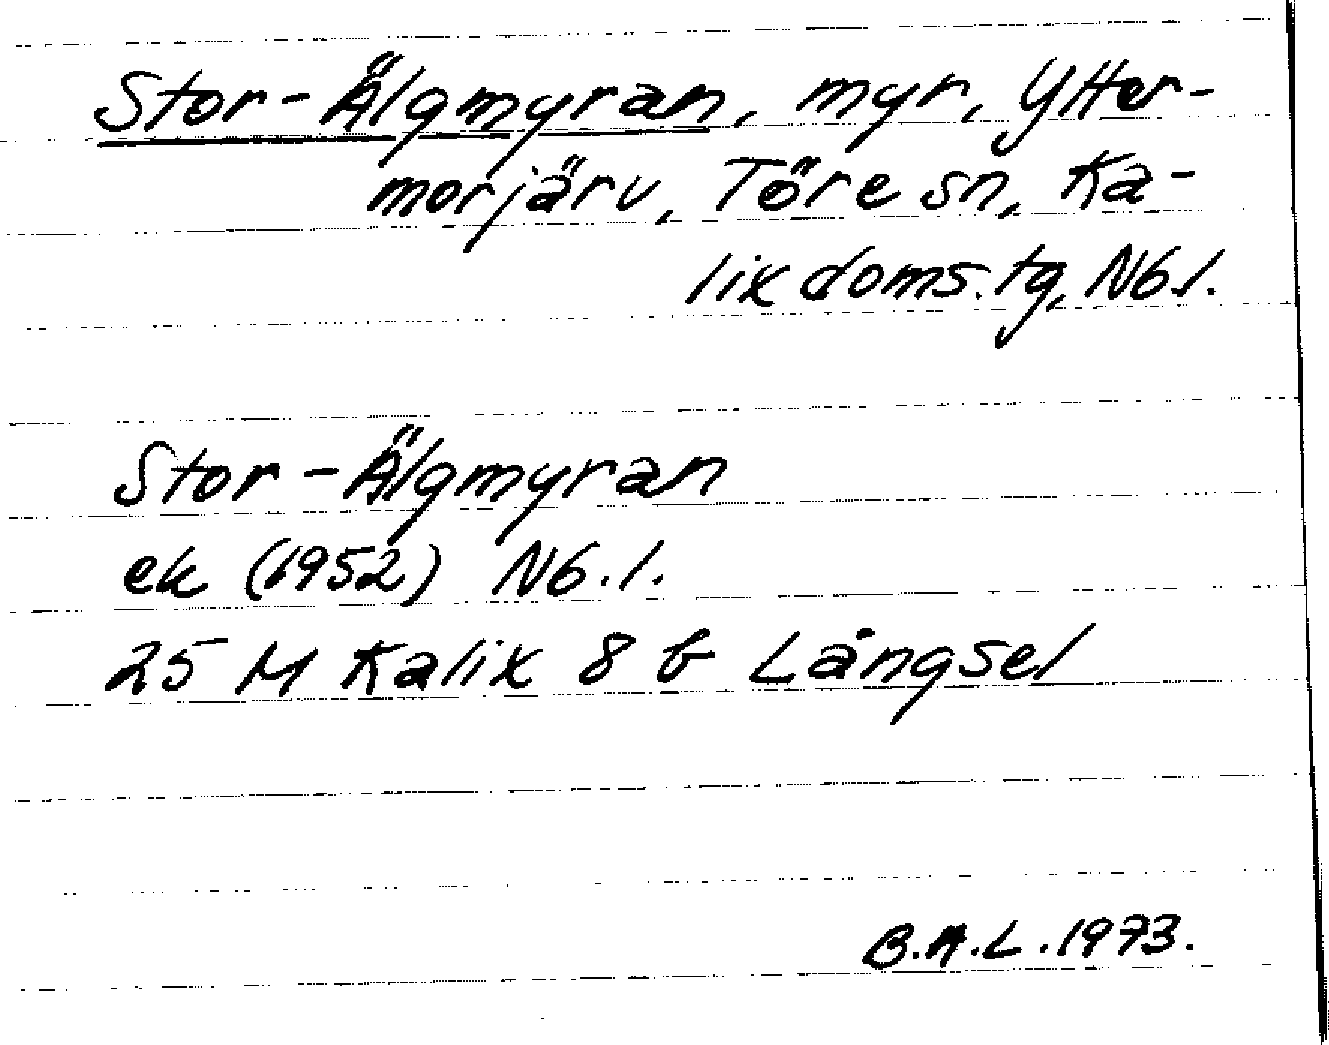 Stor-Älgmyran, myr, Ytter-
morjärv, Töre sn, Ka-
lix doms. tg, Nb.l.
Stor-Älgmyran
ek (1952) Nb.l.
25 M Kalix 8 b Långsel
B.A.L. 1973.